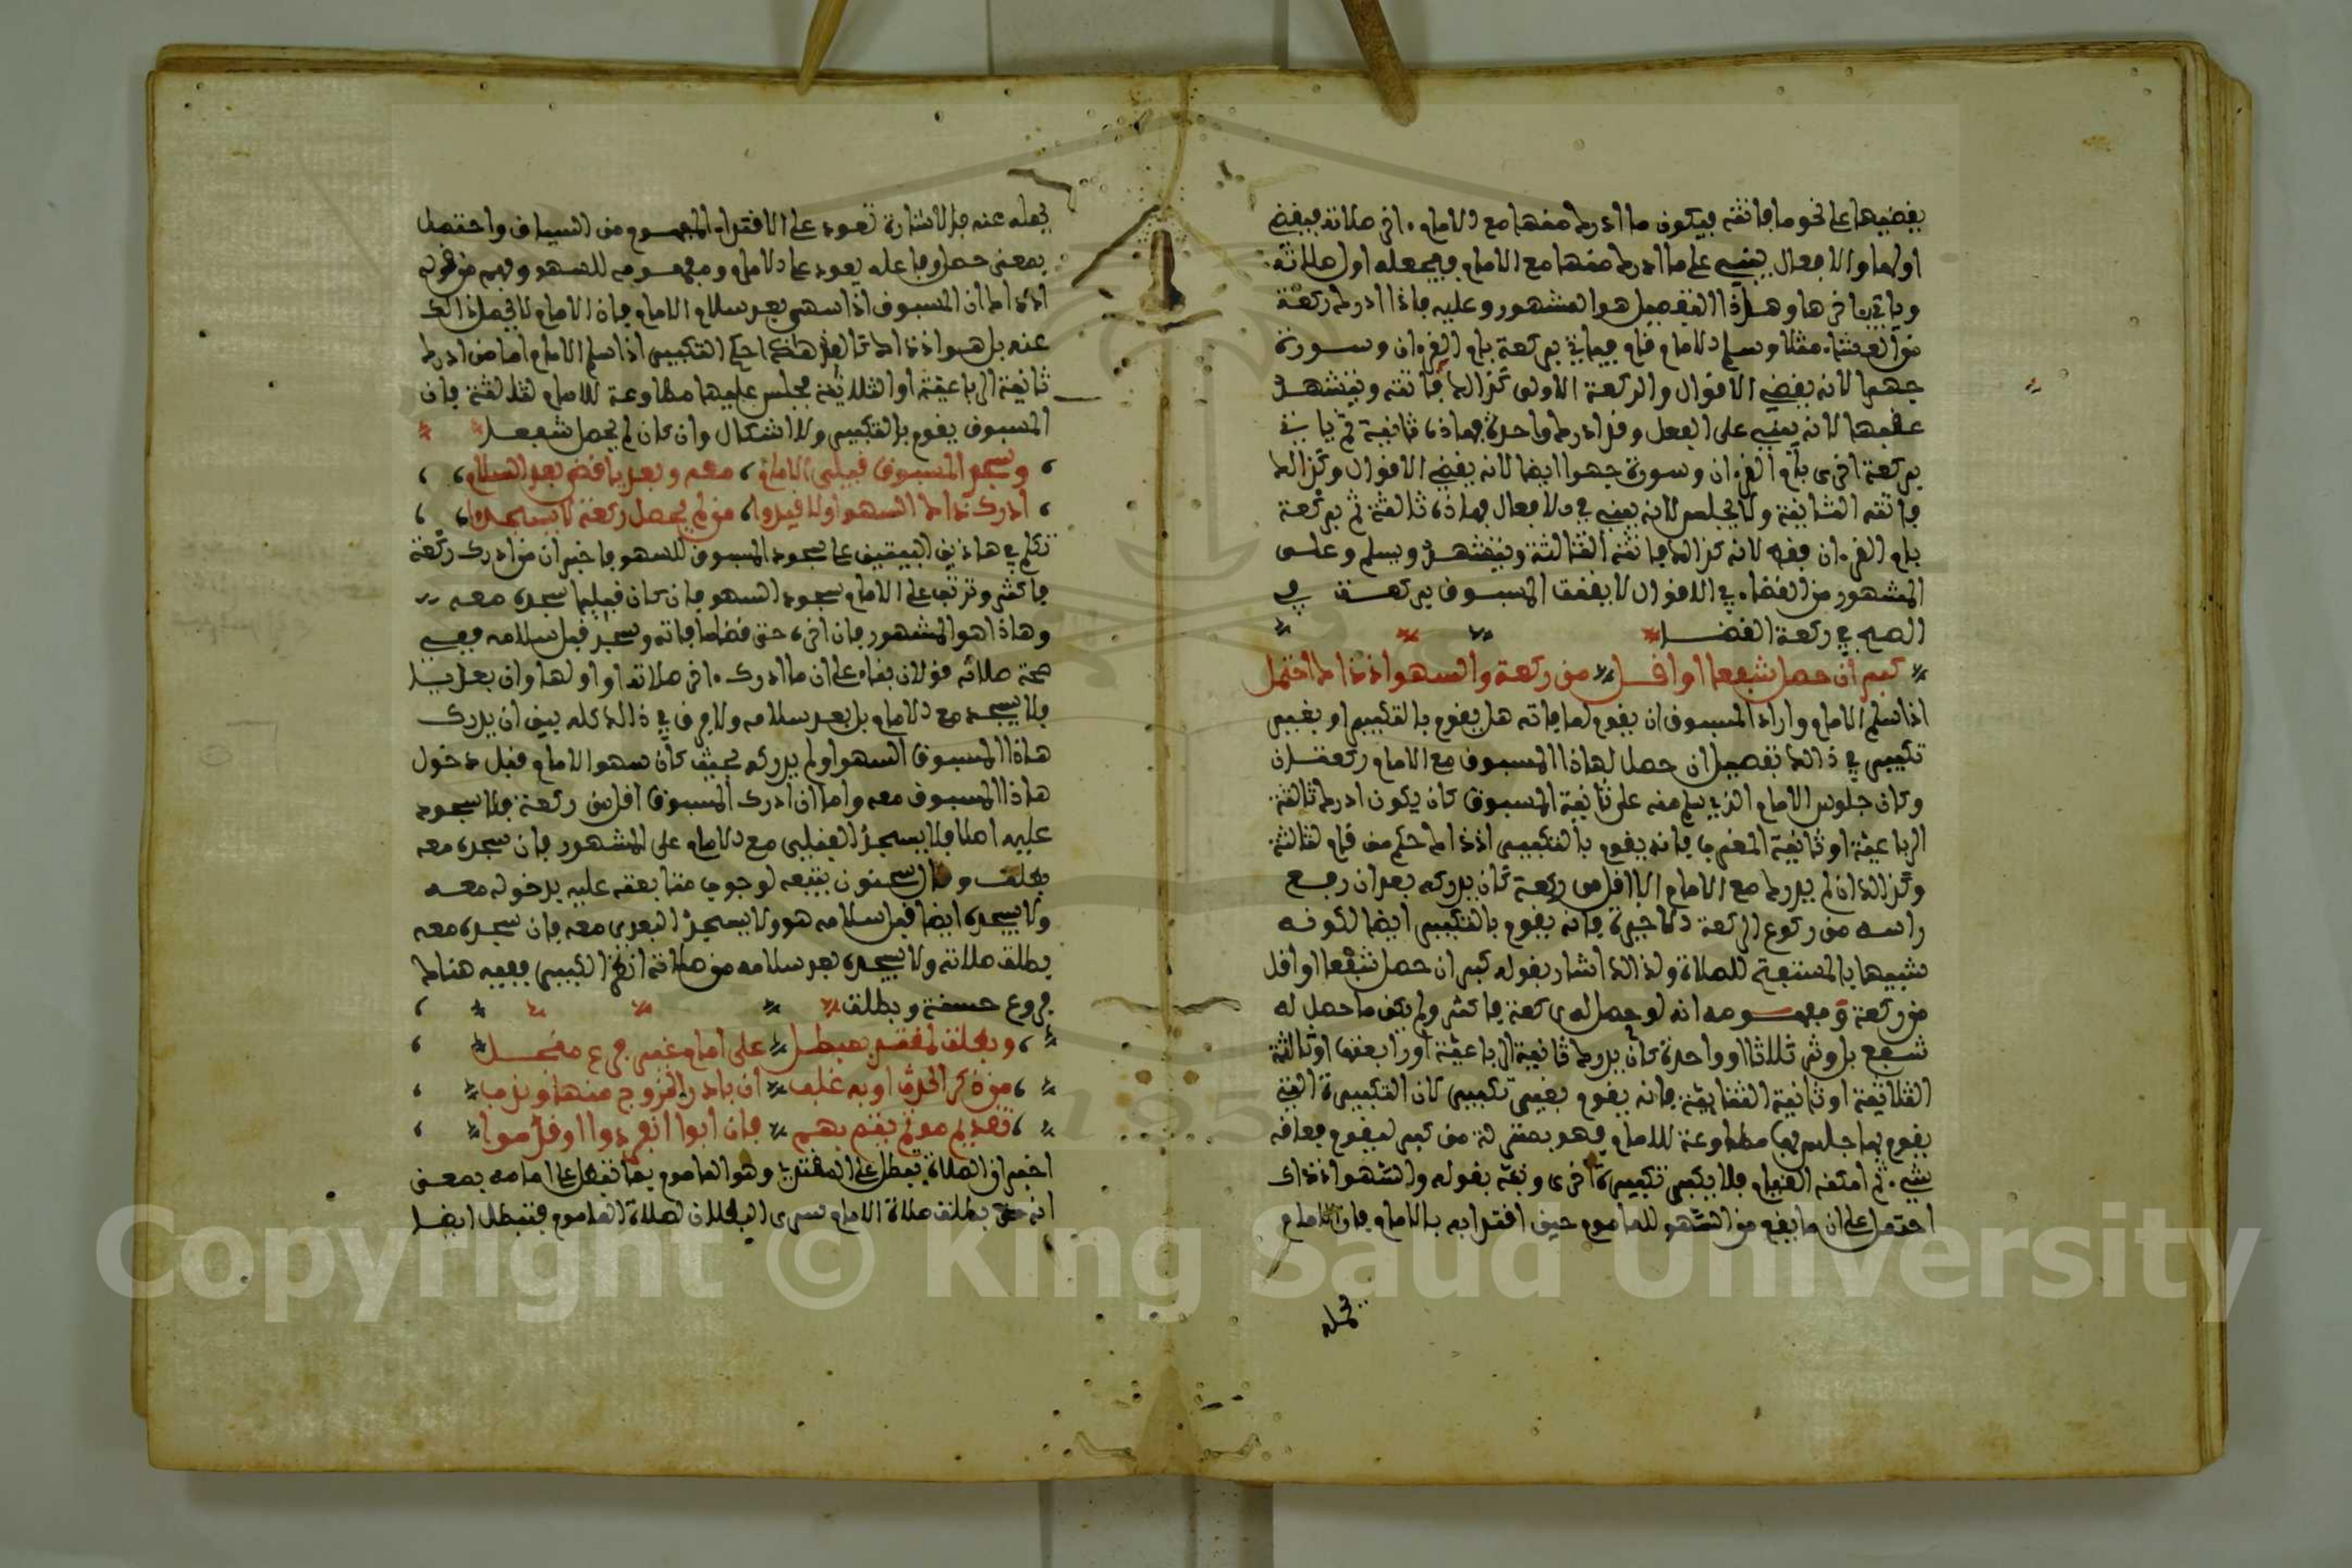 يقضيها على نحو ما فاتته فيكون ما ادرك منها مع الامام ءاخر صلاته فيقضي
اولها والافعال يبني على ما ادرك منها مع الامام فيجعله اول صلاته
وياتي بآخرها وهاذا التفصيل هو المشهور وعليه فاذا ادرك ركعة
من العشاء مثلا وسلم الامام قام فياتي بركعة بام القرءان وسورة
جهرا لانه يقضي الاقوال والركعة الاولى كذالك فاتته ويتشهد
عقبها لانه يبني على الفعل وقد ادرك واحدة فهاذه ثانية ثم ياتي
بركعة اخرى بام القرءان وسورة جهرا ايضا لانه يقضي الاقوال وكذالك
فاتته الثانية ولا يجلس لانه يبني في الافعال فهاذه ثالثة ثم بركعة
بام القرءان فقط لانه كذالك فاتته الثالثة ويتشهد ويسلم وعلى
المشهور من القضاء في الاقوال لا يقنت المسبوق بركعة في
الصبح في ركعة القضا
كبر ان حصل شفعا او اقل من ركعة والسهو اذ ذاك احتمل
اذا سلم الامام واراد المسبوق ان يقوم لما فاته هل يقوم بالتكبير او بغير
تكبير في ذالك تفصيل ان حصل لهاذا المسبوق مع الامام ركعتان
وكان جلوس الامام الذي سلم منه على ثانية المسبوق كان يكون ادرك ثالثة
الرباعية او ثانية المغرب فانه يقوم بالتكبير اذ ذاك حكم من قام لثالثة
وكذالك ان لم يدرك مع الامام الا اقل من ركعة كان يدركه بعد ان رفع
راسه من ركوع الركعة الاخيرة فانه يقوم بالتكبير ايضا لكونه
شبيها بالمستفتح للصلاة ولذالك اشار بقوله كبر ان حصل شفعا او اقل
من ركعة ومفهومه انه لو حصل له ركعة فاكثر ولم يكن ما حصل له
شفع بل وتر ثلاثا او واحدة كان يدرك ثانية الرباعية او رابعتها او ثالثة
الثلاثية او ثانية الثنايية فانه يقوم بغير تكبير لان التكبيرة التي
يقوم بها جلس بها مطاوعة للامام فهو بمنزلة من كبر ليقوم فعاقه
شيء ثم امكنه القيام فلا يكبر تكبيرة اخرى ونبه بقوله والسهو اذ ذاك
احتمل على ان ما يقع من السهو للماموم حين اقتدايه بالامام فان الامام
يحمله
يحمله عنه فالاشارة تعود على الاقتداء المفهوم من السياق واحتمل
بمعنى حمل وفاعله يعود على الامام ومفعوله للسهو وفهم من قوله
اذ ذاك ان المسبوق اذا سهى بعد سلام الامام فان الامام لا يحمل ذالك
عنه بل هو اذ ذاك كالفذ هاكذا حكم التكبير اذا سلم الامام اما من ادرك
ثانية الرباعية او الثلاثية فجلس عليها مطاوعة للامام لثالثة فان
المسبوق يقوم بالتكبير ولا اشكال وان كان لم يحصل شفعا
ويسجد المسبوق قبلي الامام معه وبعديا قضى بعد السلام
ادرك ذاك السهو او لا قيدوا من لم يحصل ركعة لا يسجد
تكلم في هاذين البيتين على سجود المسبوق للسهو فاخبر ان من ادرك ركعة
فاكثر وترتب على الامام سجود السهو فان كان قبليا سجده معه
وهاذا هو المشهور فان اخره حتى قضى ما فاته وسجد قبل سلامه ففي
صحة صلاته قولان بناء على ان ما ادرك ءاخر صلاته او اولها وان بعديا
فلا يسجده مع الامام بل بعد سلامه ولا فرق في ذالك كله بين ان يدرك
هاذا المسبوق السهو او لم يدركه بحيث كان سهو الامام قبل دخول
هاذا المسبوق معه واما ان ادرك المسبوق اقل من ركعة فلا سجود
عليه اصلا فلا يسجد القبلي مع الامام على المشهور فان سجده معه
بطلت وقال سحنون يتبعه لوجوب متابعته عليه بدخوله معه
ولا يسجده ايضا قبل سلامه هو ولا يسجد البعدي معه فان سجده معه
بطلت صلاته ولا يسجده بعد سلامه من صلاته انظر الكبير ففيه هناك
فروع حسنة وبطلت
وبطلت لمقتد بمبطل على امام غير فرع منجل
من ذكر الحدث او به غلب ان بادر الخروج منها وندب
تقديم موتم يتم بهم فان ابوا انفردوا او قدموا
اخبر ان الصلاة تبطل على المقتدي وهو الماموم بما تبطل على امامه بمعنى
انه حتى بطلت صلاة الامام سرى البطلان لصلاة الماموم فتبطل ايضا
Copyright © King Saud University